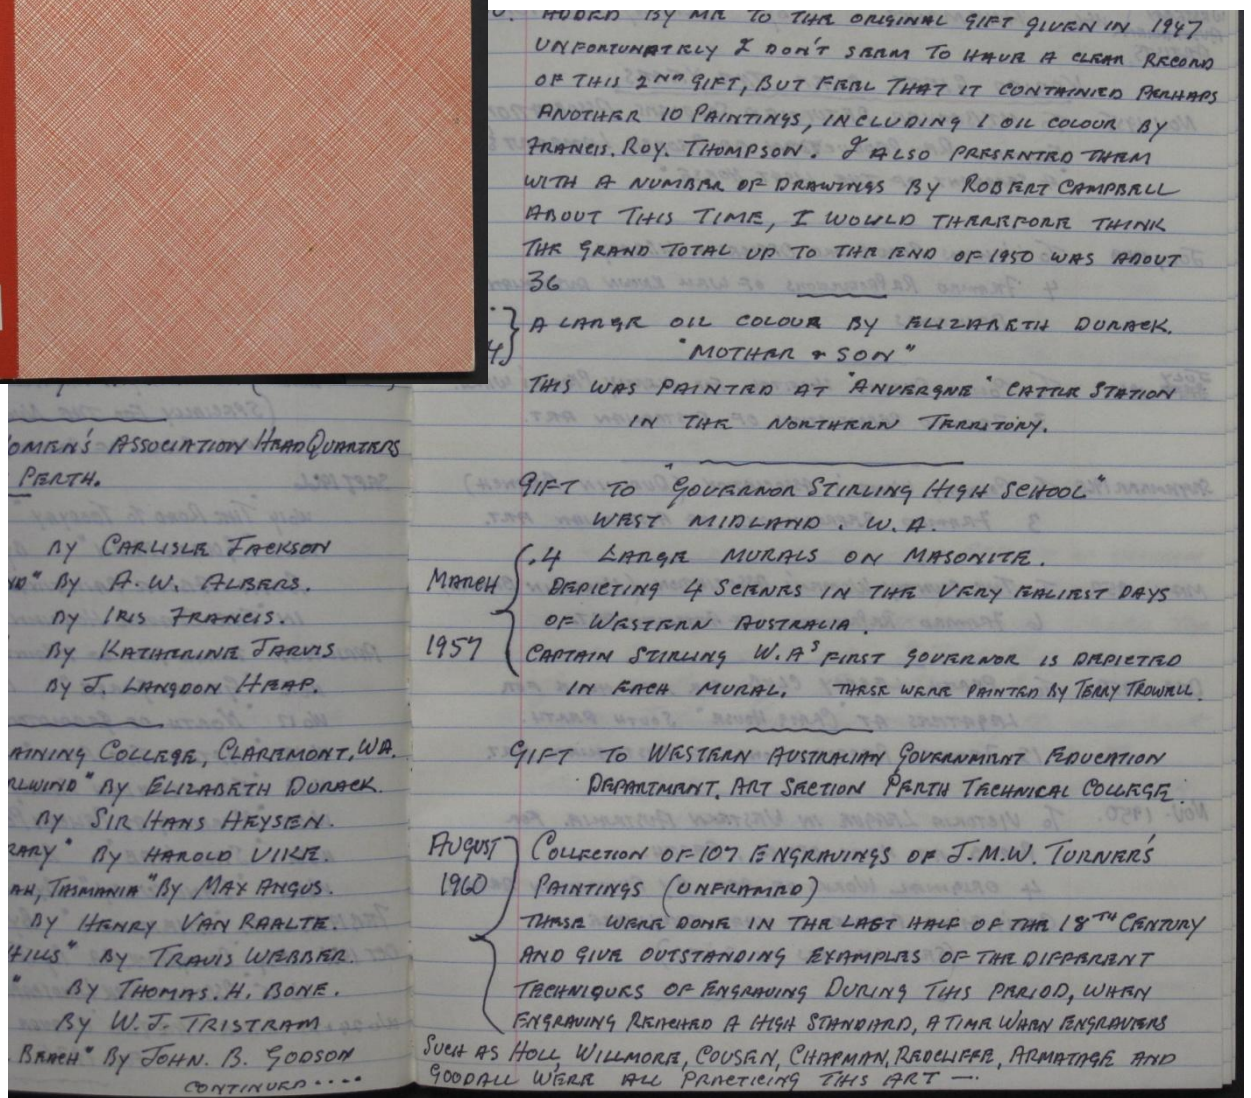 OMEN'S ASSOCIATION HEADQUARTERS
PERTH.
BY CARLISLE JACKSON
ND" BY A. W. ALBERS.
BY IRIS FRANCIS.
" BY KATHERINE JARVIS
BY J. LANGDON HEAP.
AINING COLLEGE, CLAREMONT, W.A.
RLWIND" BY ELIZABETH DURACK.
BY SIR HANS HEYSEN.
RARY" BY HAROLD VIKE.
AH, TASMANIA" BY MAX ANGUS.
BY HENRY VAN RAALTE.
HILLS" BY TRAVIS WEBBER.
" BY THOMAS. H. BONE.
BY W. J. TRISTRAM
BEACH" BY JOHN. B. GODSON
CONTINUED....
ADDED BY ME TO THE ORIGINAL GIFT GIVEN IN 1947
UNFORTUNATELY I DON'T SEEM TO HAVE A CLEAR RECORD
OF THIS 2ND GIFT, BUT FEEL THAT IT CONTAINED PERHAPS
ANOTHER 10 PAINTINGS, INCLUDING 1 OIL COLOUR BY
FRANCIS. ROY. THOMPSON. I ALSO PRESENTED THEM
WITH A NUMBER OF DRAWINGS BY ROBERT CAMPBELL
ABOUT THIS TIME, I WOULD THEREFORE THINK
THE GRAND TOTAL UP TO THE END OF 1950 WAS ABOUT
36
A LARGE OIL COLOUR BY ELIZABETH DURACK.
"MOTHER & SON"
THIS WAS PAINTED AT "AUVERGNE" CATTLE STATION
IN THE NORTHERN TERRITORY.
GIFT TO "GOVERNOR STIRLING HIGH SCHOOL"
WEST MIDLAND. W.A.
4 LARGE MURALS ON MASONITE.
MARCH DEPICTING 4 SCENES IN THE VERY EALIEST DAYS
OF WESTERN AUSTRALIA.
1957 CAPTAIN STIRLING W.A'S FIRST GOVERNOR IS DEPICTED
IN EACH MURAL. THESE WERE PAINTED BY TERRY TROWELL.
GIFT TO WESTERN AUSTRALIAN GOVERNMENT EDUCATION
DEPARTMENT. ART SECTION PERTH TECHNICAL COLLEGE.
AUGUST COLLECTION OF 107 ENGRAVINGS OF J.M.W. TURNER'S
1960 PAINTINGS (UNFRAMED)
THESE WERE DONE IN THE LAST HALF OF THE 18TH CENTURY
AND GIVE OUTSTANDING EXAMPLES OF THE DIFFERENT
TECHNIQUES OF ENGRAVING DURING THIS PERIOD, WHEN
ENGRAVING REACHED A HIGH STANDARD, A TIME WHEN ENGRAVERS
SUCH AS HOLL, WILLMORE, COUSEN, CHAPMAN, REDCLIFFE, ARMATAGE AND
GOODALL WERE ALL PRACTICING THIS ART —.